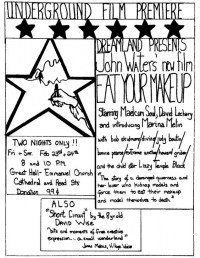 UNDERGROUND FILM PREMIERE
DREAMLAND PRESENTS
John Waters' new film
EAT YOUR MAKEUP
Starring Maelcum Soul, David Lochary
and introducing Marina Melin
with bob skidmore/divine/judy boutin/
bonnie pearce/extreme unction/howard gruber/
and the child star Lizzy Temple Black
"The story of a deranged governess and
her lover who kidnap models and
force them to eat their makeup
and model themselves to death."
TWO NIGHTS ONLY!!
Fri - Sat Feb 23rd, 24th
8 and 10 P.M.
Great Hall - Emmanuel Church
Cathedral and Read Sts
Donation 99¢
ALSO
"Short Circuit" by the 8 yr old
Davis Wise
"bits and moments of free creative
expression... a small wonderland"
Jonas Mekas, Village Voice